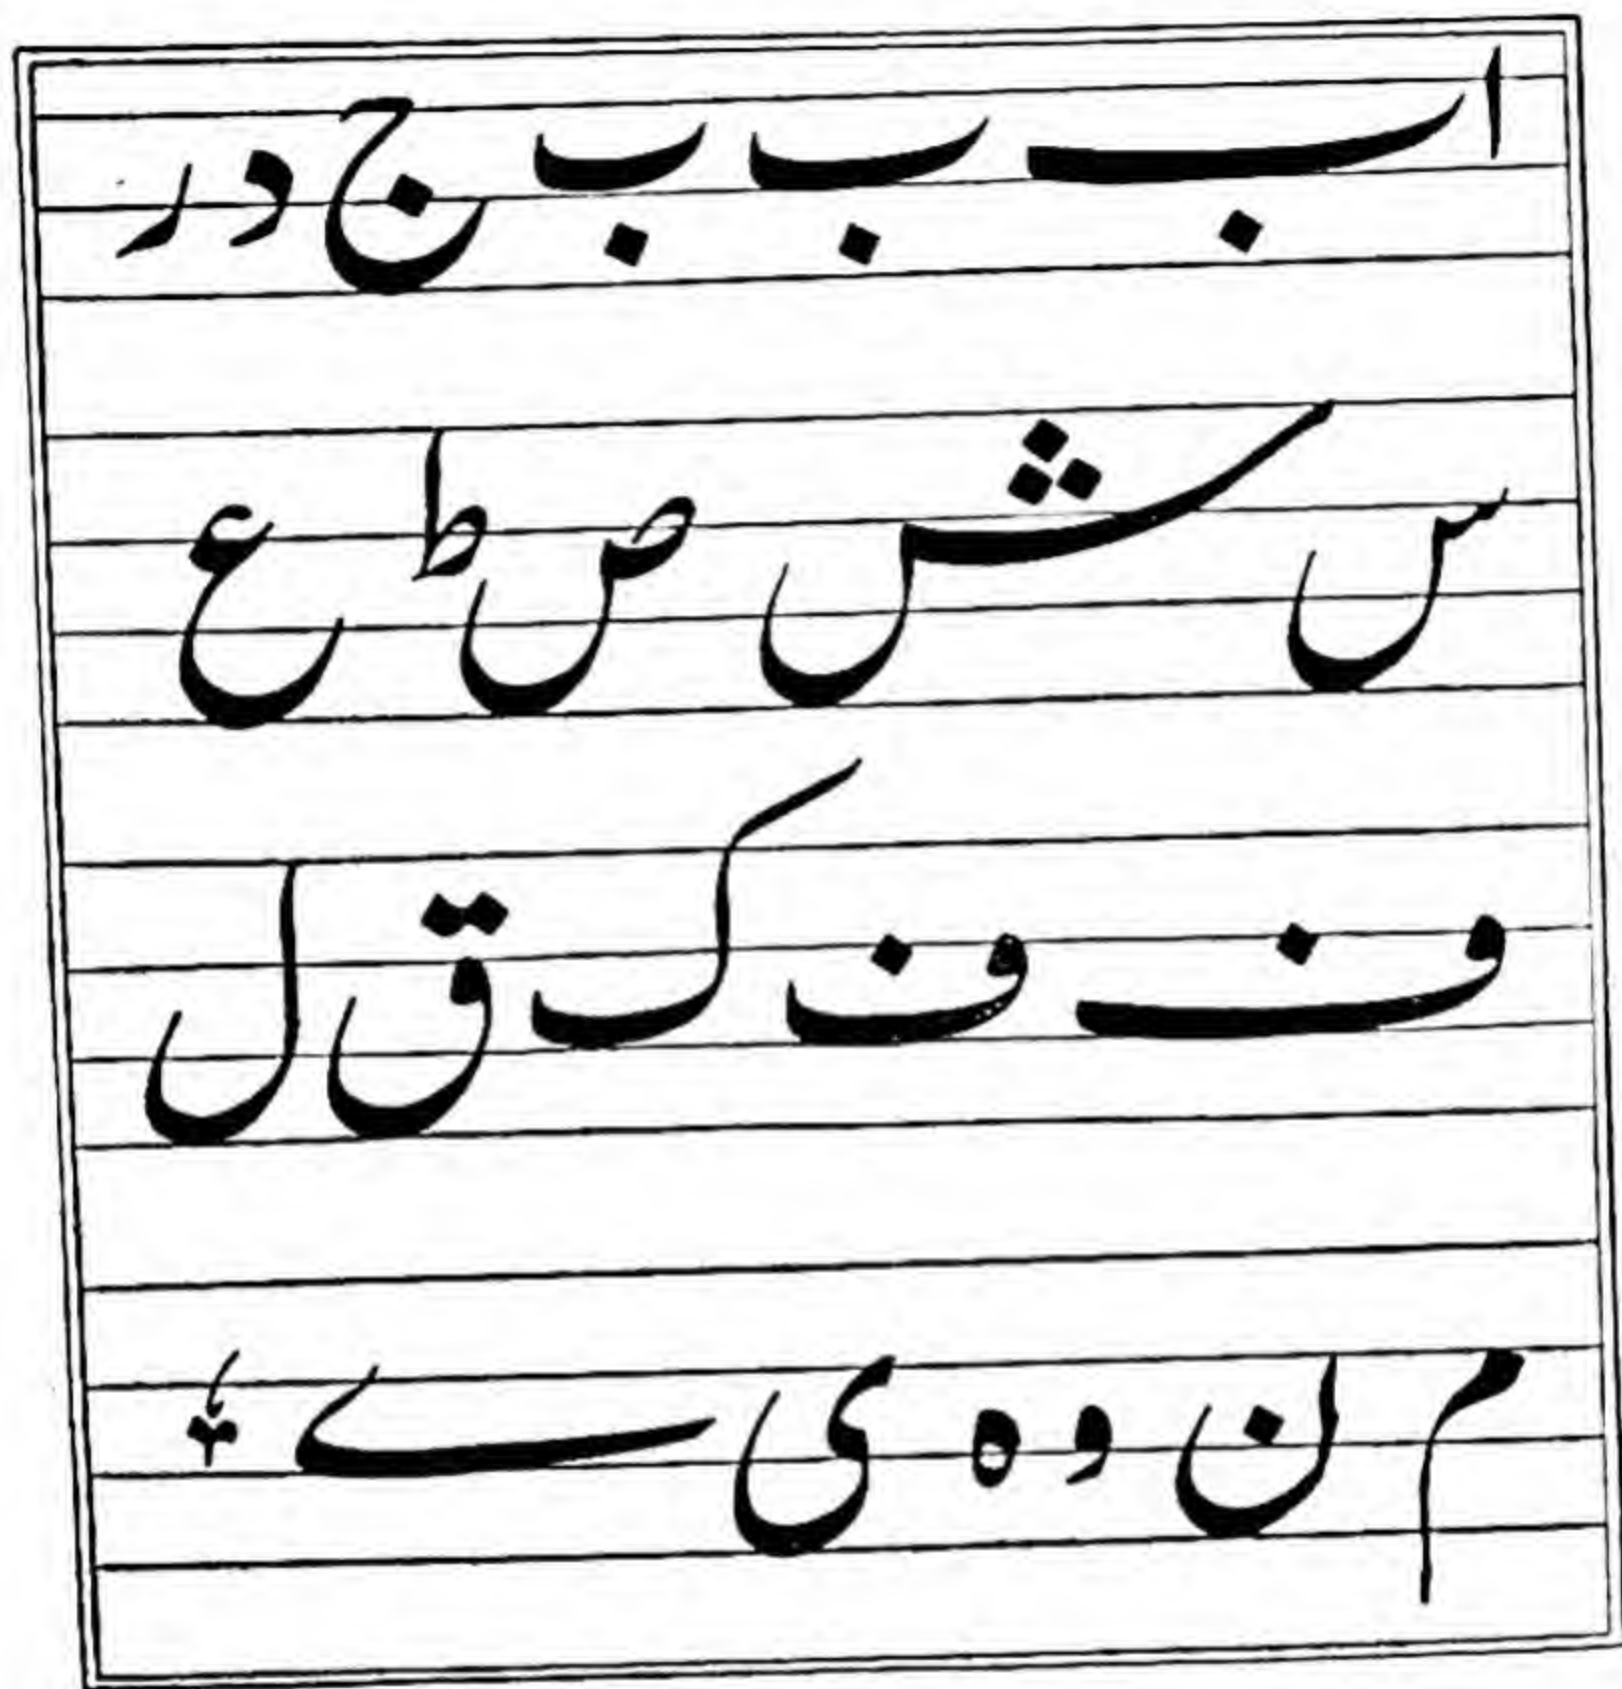 ا ب ب ب ج د ر
س ش ص ط ع
ف ف ک ق ل
م ن و ه ی ے